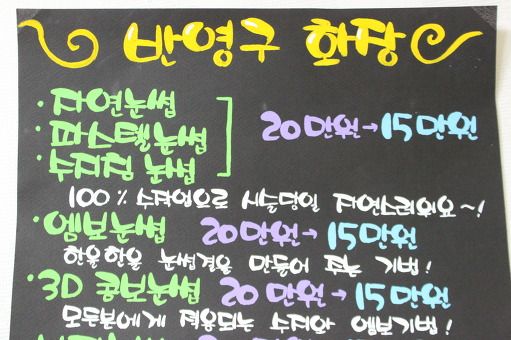 반영구 화장
· 자연눈썹
· 파스텔눈썹
· 수지침 눈썹
20만원→15만원
100% 수작업으로 시술당일 자연스러워요~!
· 엠보눈썹 20만원→15만원
한올한올 눈썹결을 만들어 주는 기법!
· 3D 콤보눈썹 20만원→15만원
모든분에게 적용되는 수지와 엠보기법!
20만원→15만원